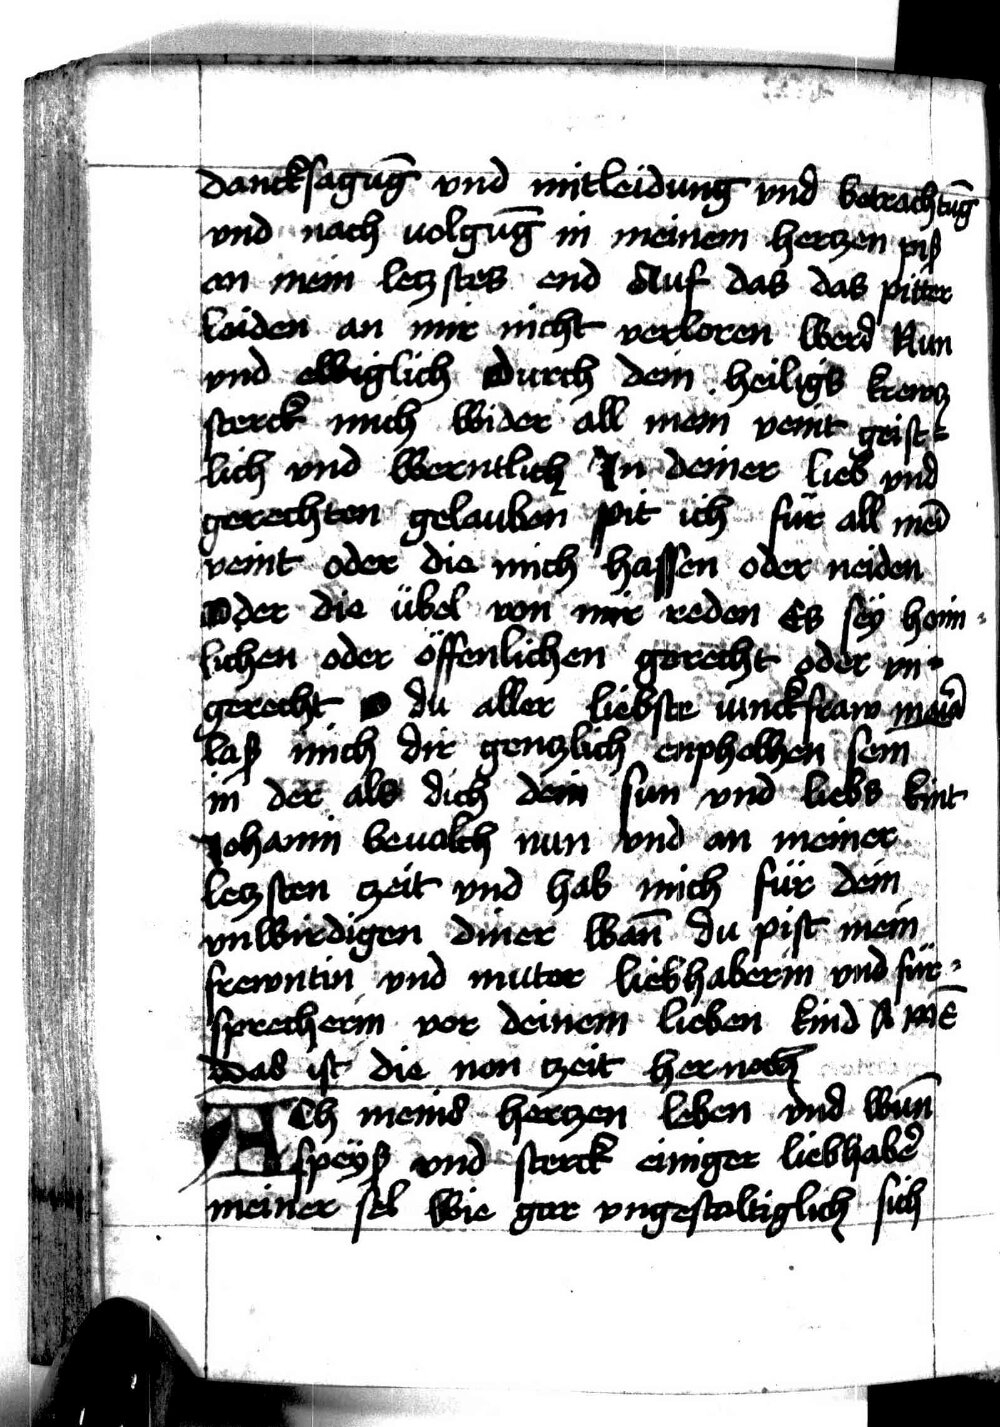 dancksagūg vnd mitleidung vnd betrachtūg
vnd nach uolgūg in meinem hertzen piß
an mein letzstes end Auf das das pitter
leiden an mir nicht verloren werd Nun
vnd ewiglich Durch dein heiligs krewtz
sterck mich wider all mein veint geist-
lich vnd werntlich In deiner lieb vnd
gerechten gelauben pit ich für all mei
veint oder die mich hassen oder neiden
Oder die übel von mir reden Es sey heim-
lichen oder öffenlichen gerecht oder vn-
gerecht O du aller liebste iunckfraw
laß mich dir gentzlich enpholhen sein
in der als dich dein sun vnd liebs kint
Johanni beualch nun vnd an meiner
letzsten tzeit vnd hab mich für dein
vnwirdigen diner wañ du pist mein
frewntin vnd muter liebhaberin vnd für-
sprecherin vor deinem lieben kind A mē
Das ist die non tzeit hernoch
ACh meins hertzen leben vnd wūn
speyß vnd sterck einiger liebhaber
meiner sel wie gar vngestaltiglich sich